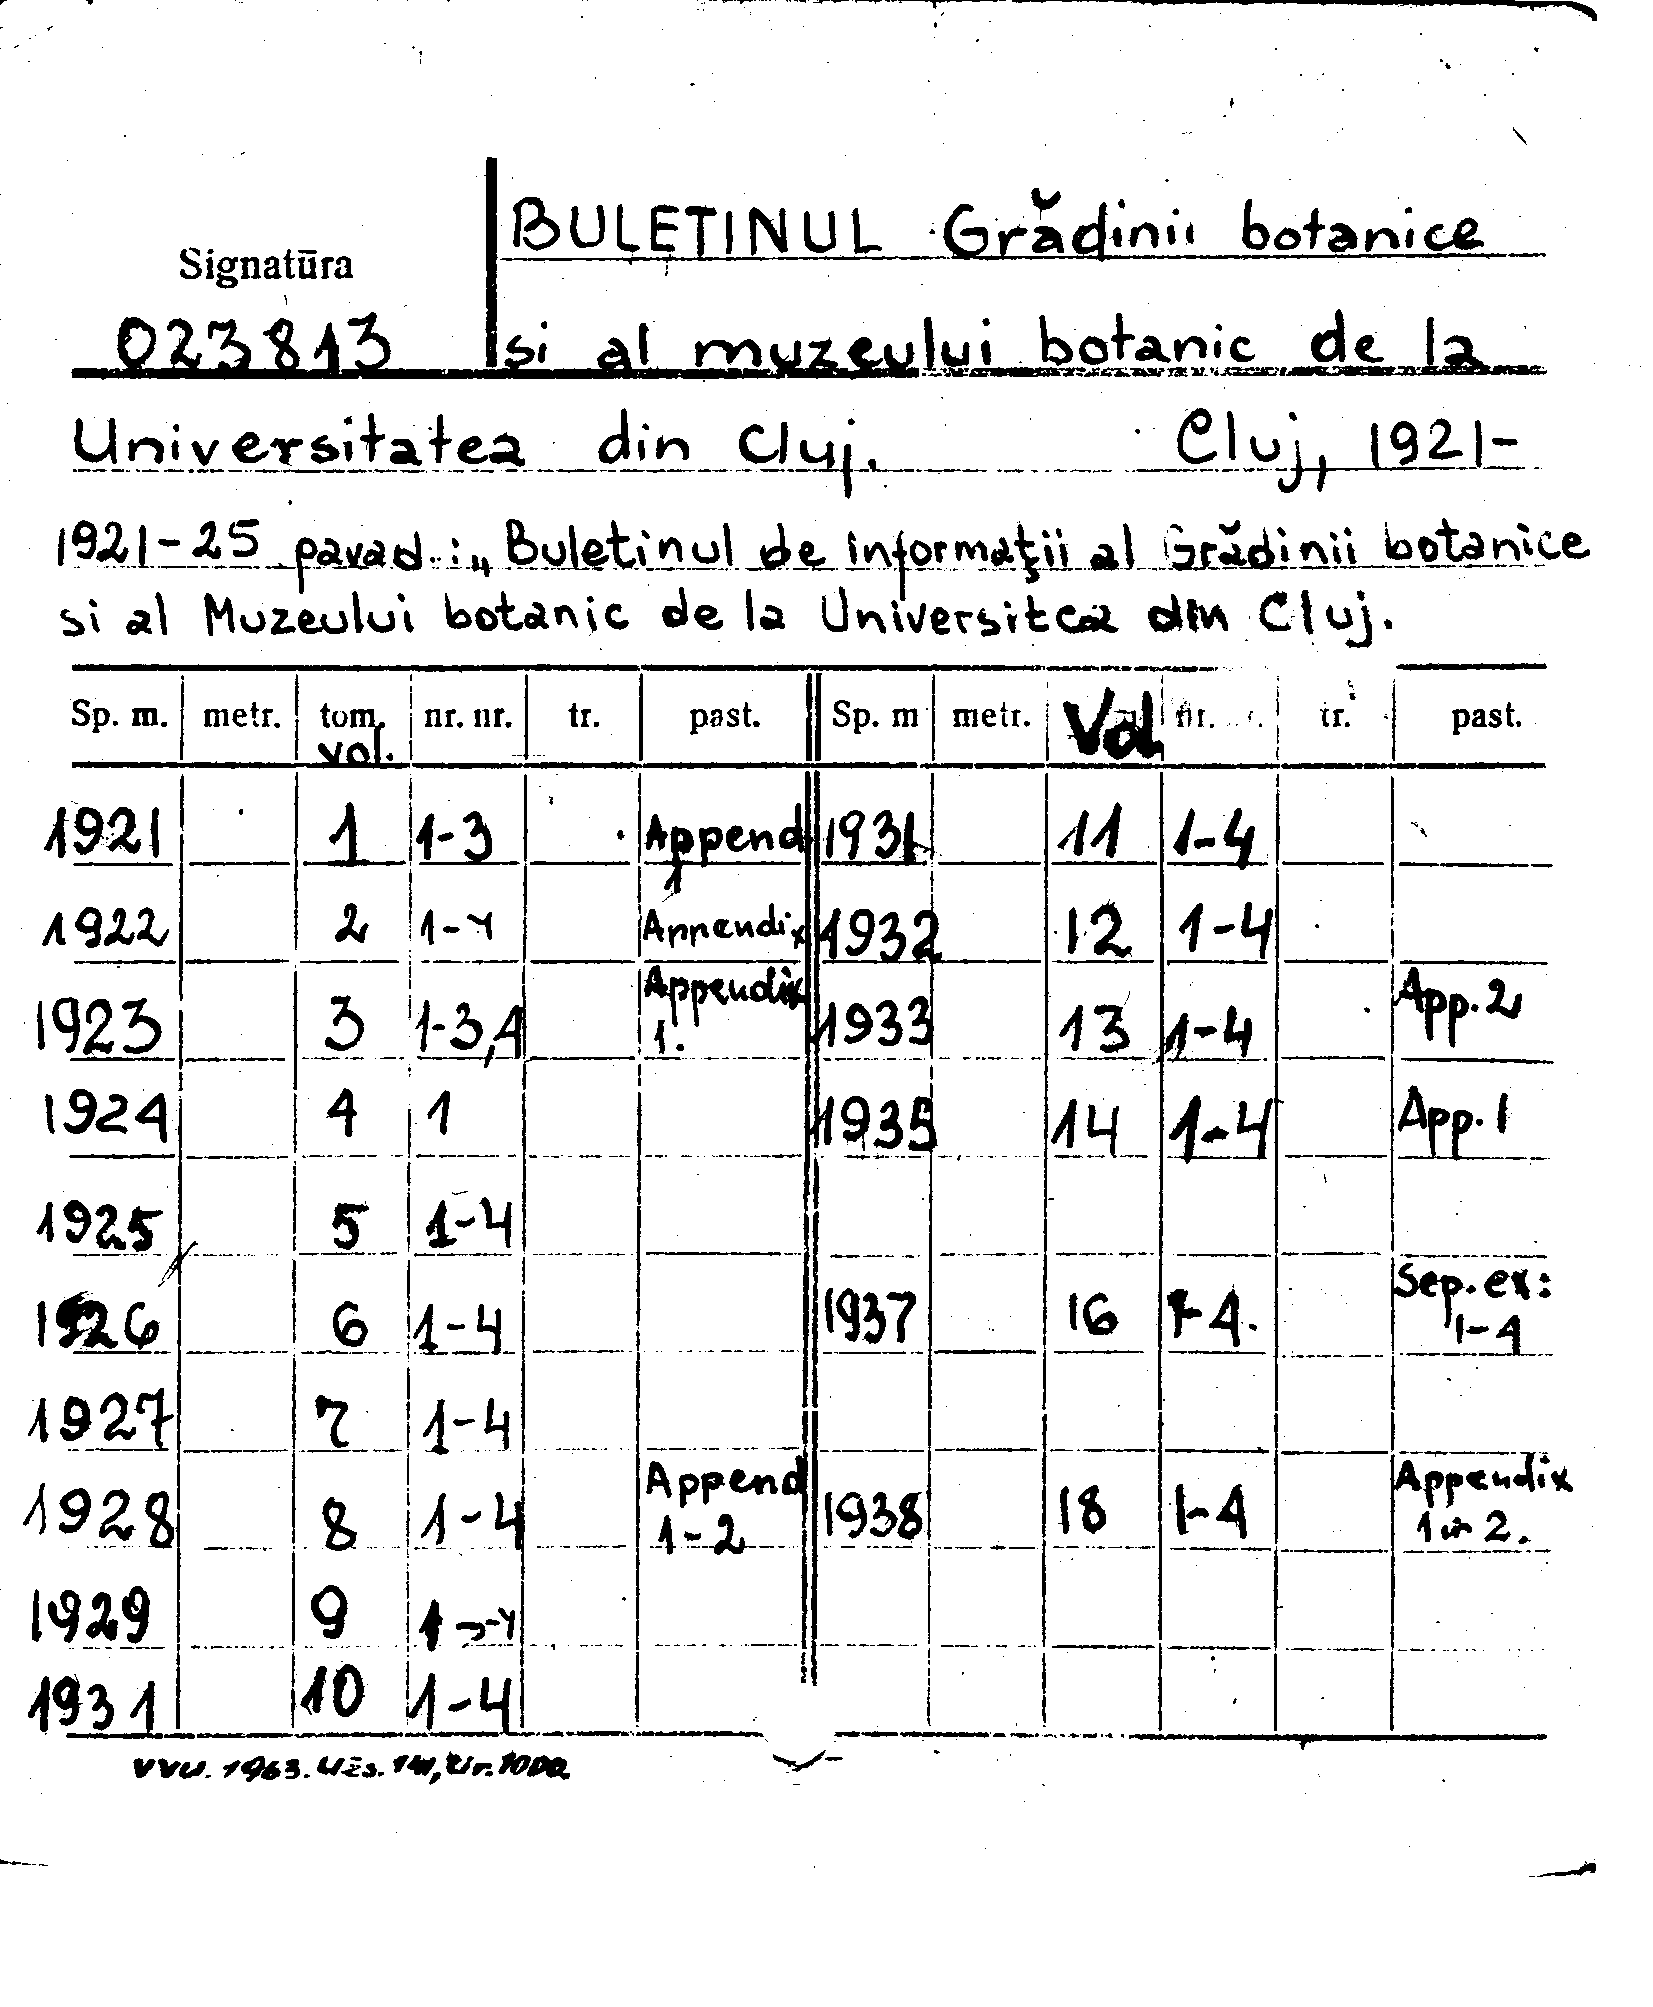 BULETINUL Grădinii botanice
Signatūra
023813 si al muzeului botanic de la
Universitatea din Cluj. Cluj, 1921-
1921-25 pavad.: „Buletinul de informaţii al Grădinii botanice
si al Muzeului botanic de la Universitea din Cluj.
Sp. m. metr. tom. nr. nr. tr. past. Sp. m metr. Vol nr. tr. past.
vol.
1921 1 1-3 Append 1931 11 1-4
1
1922 2 1-4 Appendix 1932 12 1-4
1923 3 1-3,4 Appendix 1. 1933 13 1-4 App. 2
1924 4 1 1935 14 1-4 App. 1
1925 5 1-4
1926 6 1-4 1937 16 1-4. Sep. ex: 1-4
1927 7 1-4
1928 8 1-4 Append 1-2 1938 18 1-4 Appendix 1 2.
1929 9 1-4
1931 10 1-4
VVU. 1963. Užs. 141, tir. 1000